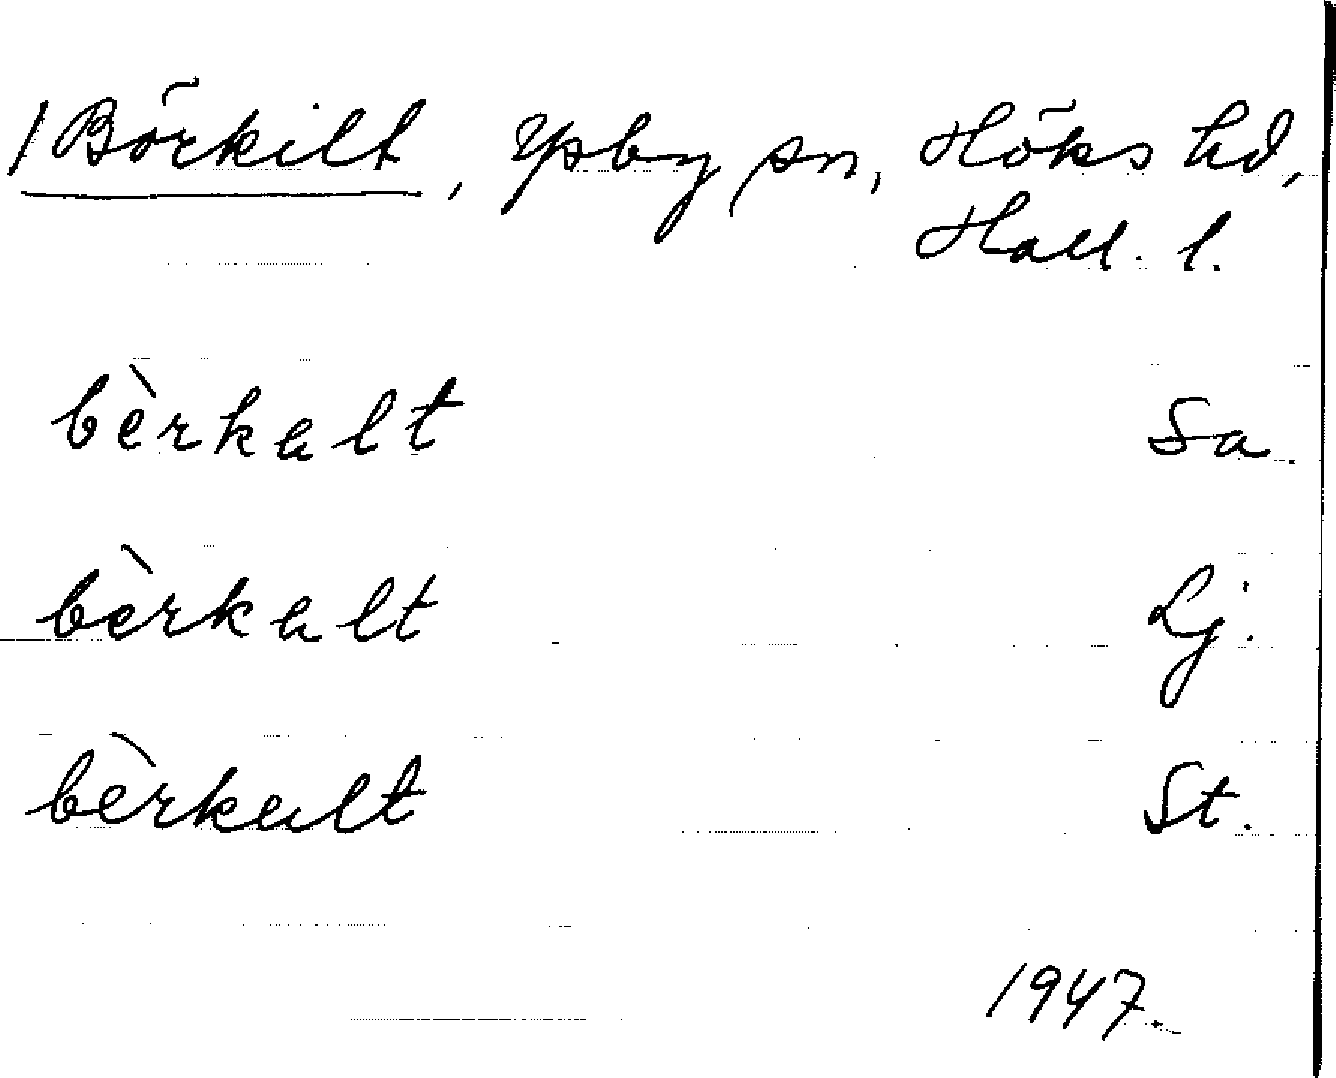 /Börkilt, Ysby sn, Höks hd,
Hall. l.
bèrkalt Sa.
bèrkalt Lj.
bèrkalt St.
1947.